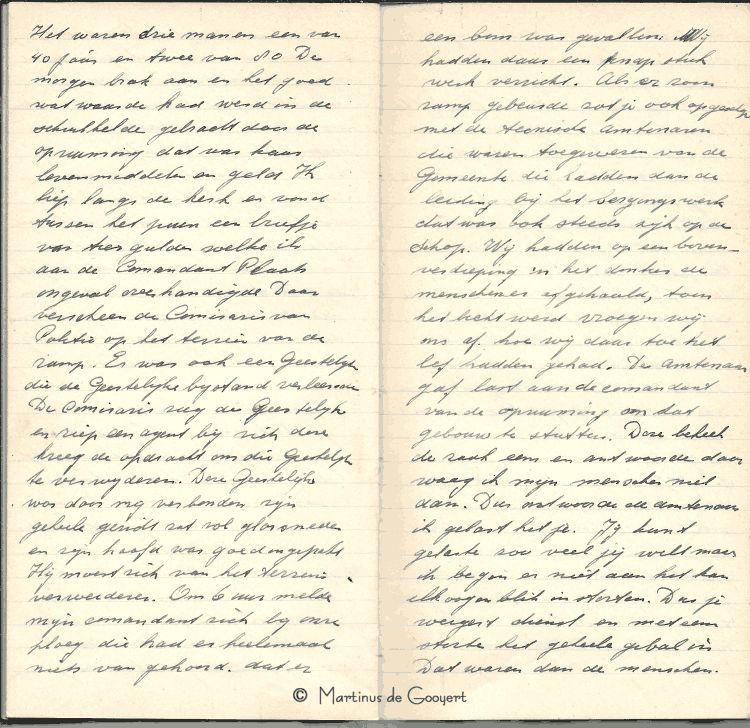 Het waren drie mannen een van
40 jaar en twee van 80 De
morgen brak aan en het goed
wat waarde had werd in de
schuthelde gebracht door de
opruiming dat was kaas
levensmiddelen en geld Ik
liep langs de kerk en vond
tussen het puin een briefje
van tien gulden welke ik
aan de Comandant Plaats
ongeval overhandigde Daar
verscheen de Comisaris van
Politie op het terrein van de
ramp. Er was ook een Geestelijke
die de Geestelijke bystand verleende
De Comisaris zag de Geestelijke
en riep een agent bij zich deze
kreeg de opdracht om die Geestelijke
te verwyderen. Deze Geestelijke
was door my verbonden zijn
geheele gezicht zat vol glassneden
en zijn hoofd was goed ingepakt
Hij moest zich van het terrein
verweideren. Om 6 uur melde
mijn comandant zich by onze
ploeg die had er heelemaal
niets van gehoord. dat er
een bom was gevallen. Wij
hadden daar een knap stuk
werk verricht. Als er zoon
ramp gebeurde zat je ook opgescheept
met de tecnische amtenaren
die waren toegewezen van de
Gemeente die hadden dan de
leiding bij het bergingswerk
dat was ook steeds zijk op de
schop. Wij hadden op een boven-
verdieping in het donker de
menschen er afgehaald, toen
het licht werd vroegen wij
ons af hoe wij daar toe het
lef hadden gehad. De amtenaar
gaf last aan de comandant
van de opruiming om dat
gebouw te stutten. Deze bekeek
de zaak eens en antwoorde daar
waag ik mijn menschen niet
aan. Dus antwoorde de amtenaar
ik gelast het je. Jij kunt
gelaste zoo veel jij wilt maar
ik begin er niet aan het kan
elk oogenblik in storten. Dus je
weigert dienst en met een
storte het geheele gebal in
Dat waren dan de menschen.
© Martinus de Gooyert